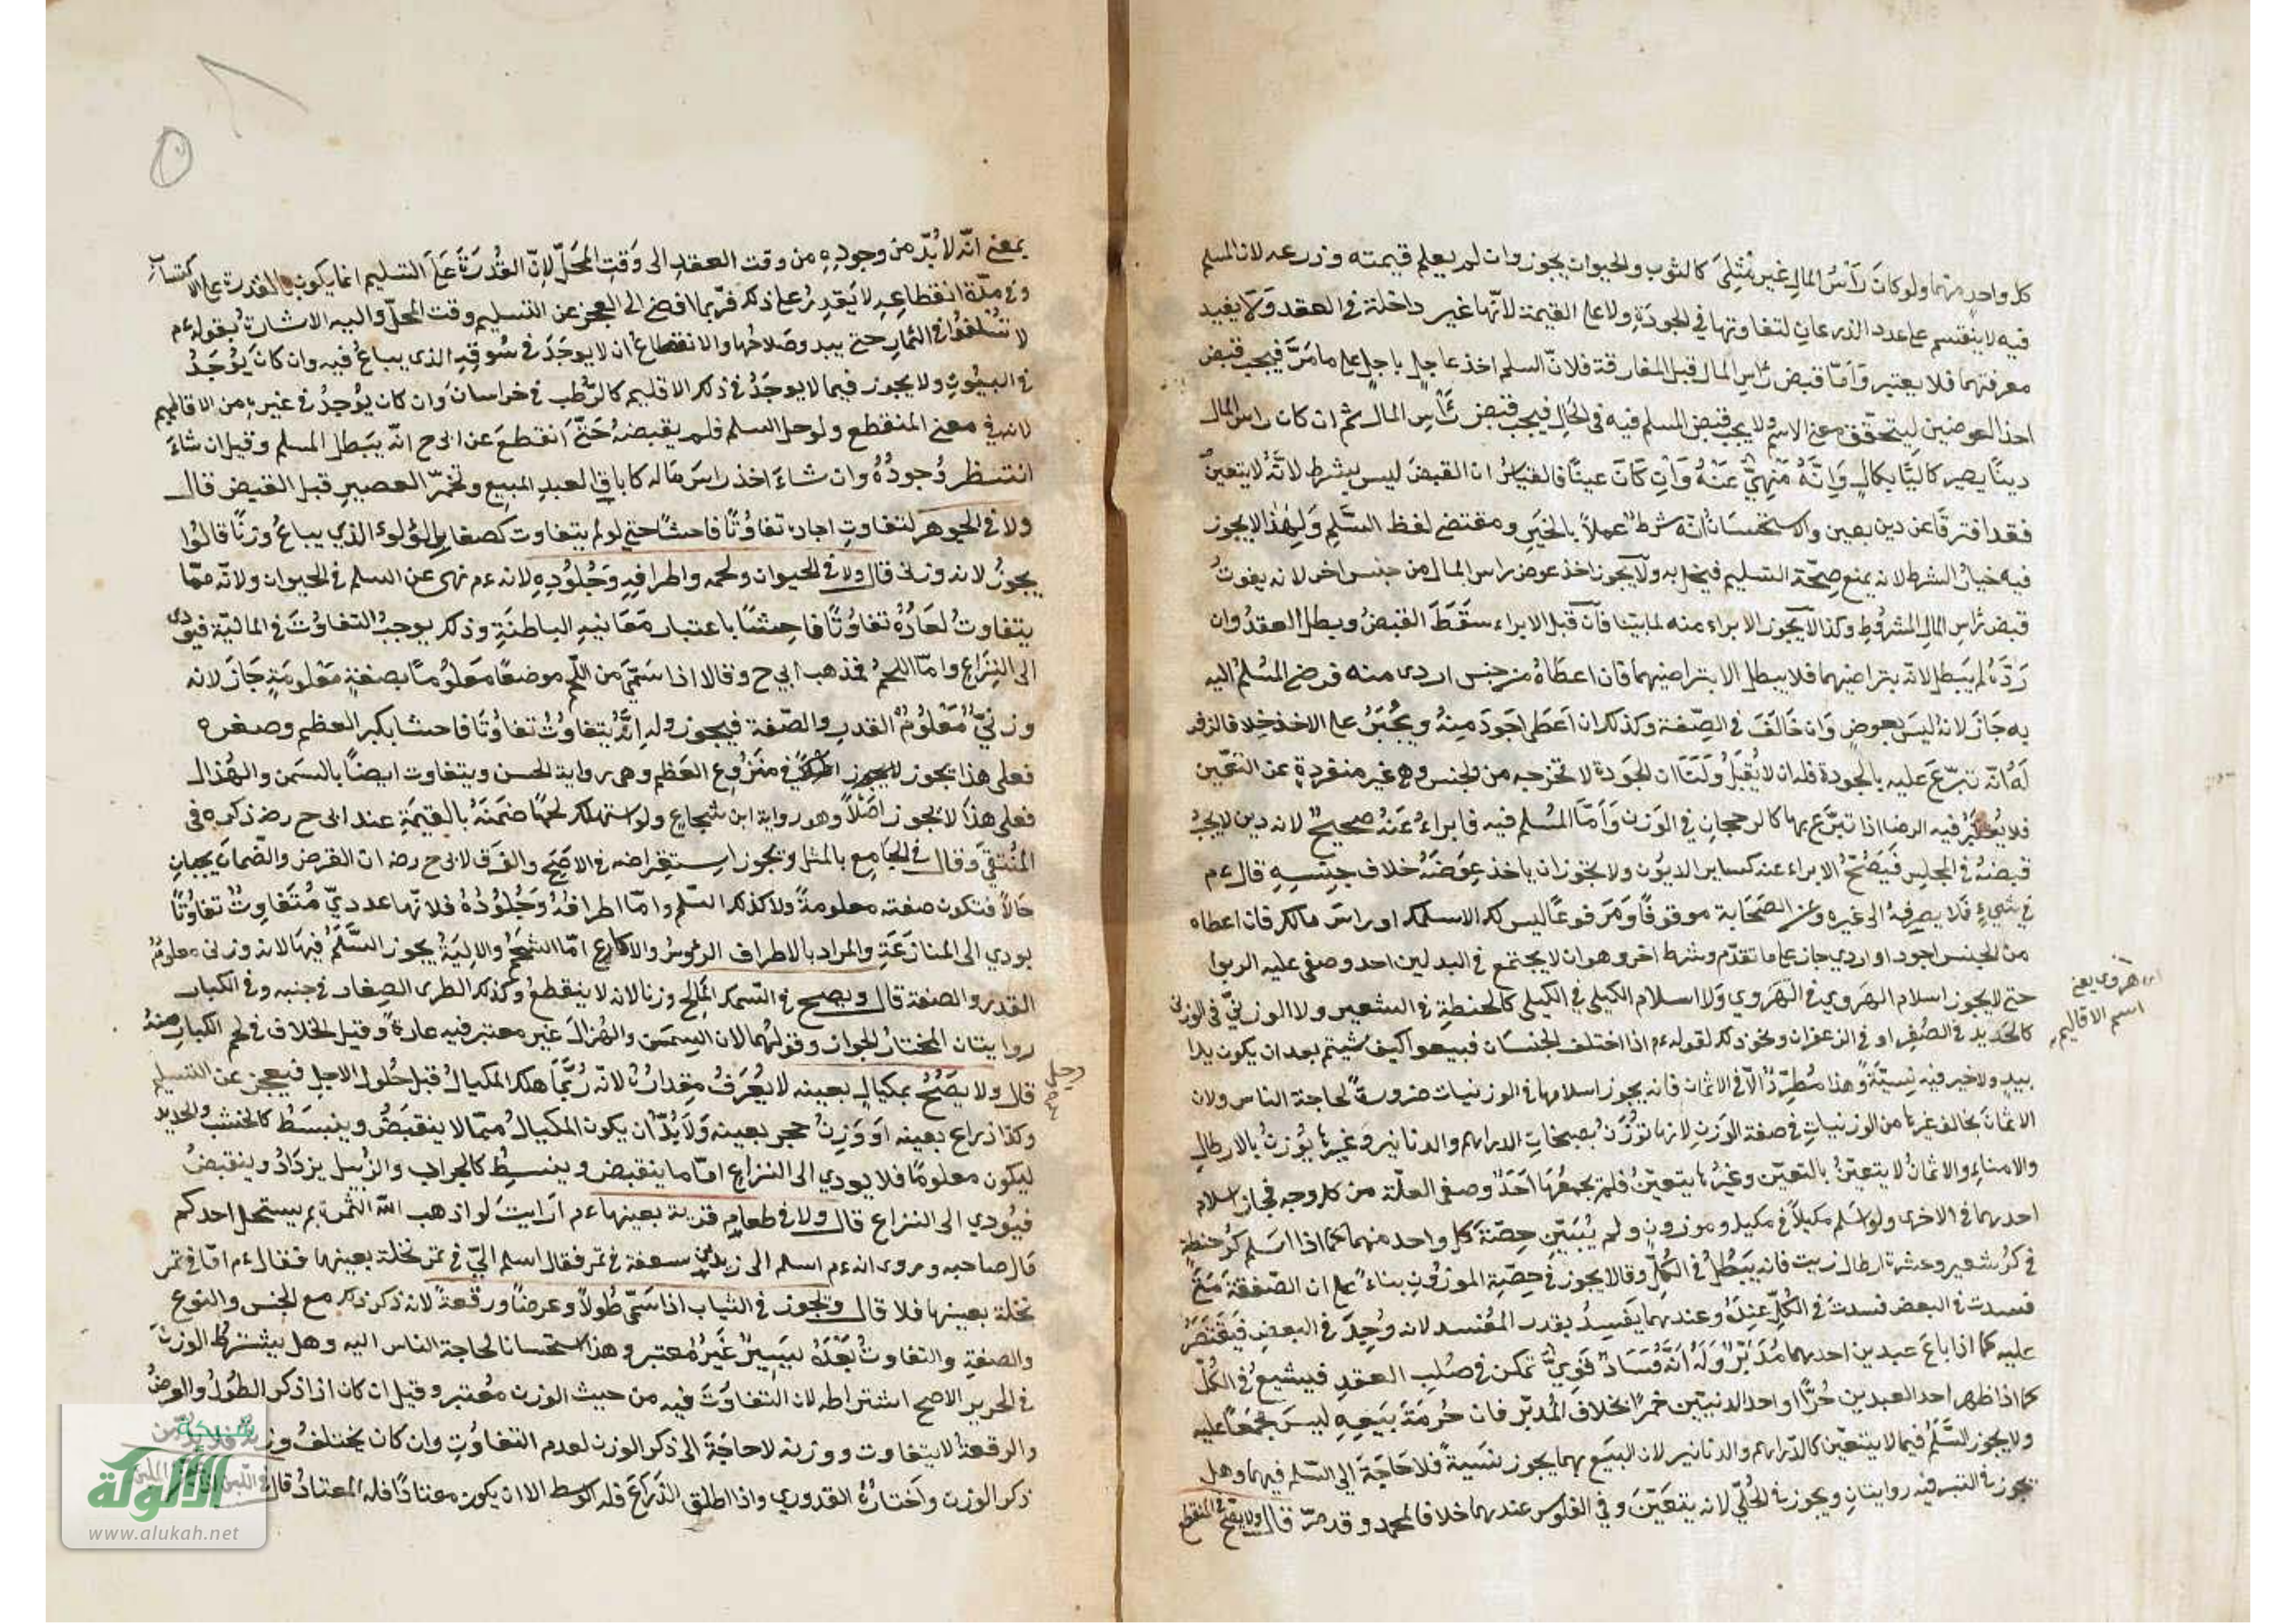 كل واحدٍ منهما ولو كانَ رَأسُ المالِ غير مثليّ كالثوب والحيوان يجوز وان لم يعلم قيمته وذرعه لان المسلم
فيه لا ينقسم على عدد الذرعانِ لتفاوتها في الجودَةِ ولا على القيمة لانّها غير داخلة في العقد وَلا يفيد
معرفتهما فلا يعتبر وَامّا قبض رَأسِ المال قبل المفارقة فلانّ السلم اخذ عاجلٍ باجلٍ على ما مَرَّ فيجب قبض
احد العوضين ليتحقّق معنى الاسم ولا يجب قبض المسلم فيه في الحالِ فيجب قبض رَأسِ المال ثم ان كان راس المال
دينًا يصير كاليًا بكالٍ وَانَّهُ مَنْهِيٌّ عَنْهُ وَانْ كَانَ عينًا فالقياسُ ان القبضَ ليس بشرط لانَّهُ لا يتعينُ
فقد افترقَا عن دين بعين والاستحسانُ انّه شرطٌ عملًا بالخبَرِ ومقتضى لفظ السَّلمِ وَلهٰذا لا يجوز
فيه خيارُ الشرط لانه يمنع صِحّة التسليم فيخل به وَلا يجوز اخذ عوض راس المال من جنس اخر لانه يفوتُ
قبض رَأسِ المالِ المشروطِ وكذا لا يجوز الابراء منه لما بيّنا فانْ قبل الابراء سقَطَ القبضُ ويبطل العقدُ وان
رَدَّهُ لم يَبطل لانّه بتراضيهما فلا يبطل الا بتراضيهما فان اعطَاهُ من جنس اردى منه فرضى المُسْلمُ اليه
به جَازَ لانهُ ليسَ بعوضٍ وَان خَالَفَ في الصِّفة وكذلك ان اعَطى اجوَدَ مِنهُ ويُجْبَرُ على الاخذ خلافا لزفر
لهُ انّه تبرّعَ عَليه بالجودة فله ان لا يُقبَلَ وَلَنَا ان الجَودة لا تخرجه من الجنس وهي غير منفردةٍ عن العَين
فلا يُعتبَرُ فيه الرضا اذا تبرَّع بها كالرجحانِ في الوَزن وَامَّا المُسْلم فيه فابراءُ عَنهُ صحيحٌ لانه دين لا يجبُ
قبضهُ في المجلِس فَيَصُحُّ الابراء عنه كساير الديوُن ولا يجوز ان ياخذ عِوَضَهُ خلاف جنِسِهِ قال ءم
في شيءٍ فَلا يصرِفهُ الى غيره وعن الصَحَابة موقوفًا وَمَرفوعًا ليس لك الا سلمك او راسَ مالك فان اعطاه
من الجنس اجود او اردي جاز على ما تقدّم وشرط اخر وهو ان لا يجتمع في البدلين احد وصفي عليه الربوا
حتى لا يجوز اسلام الهَروي في الهَروي وَلا اسلام الكيلي في الكيلى كالحنطةِ في الشعير ولا الوزنيّ في الوزنى
اى هروى يعنى
اسم الاقاليم
كالحَديد في الصُفرِ او في الزعفران ونحو ذلك لقوله ءم اذا اختلف الجنسَان فبيعوا كيف شيتم بعد ان يكون يدا
بيدٍ ولا خير فيه نسيَّةً وهذا مُطّرِدٌ الّا في الاثمان فانه يجوز اسلامها في الوزنيات ضرورةً لحاجة الناس ولان
الاثمانَ يخالف غيرها من الوزنياتِ في صفة الوَزنِ لانها تُوْزَنُ بصنجاتِ الدراهم والدنانير وَغيرها يُوزنُ بالارطالِ
والامناءِ والاثمانُ لا يتعيّنُ بالتعيّن وغيرُها يتعيّنُ فلم يجمعُها احَدُ وصفى العلّة من كل وجه فجاز اسلام
احدهما في الاخرى ولو اسلم مكيلًا في مكيل وموزونٍ ولم يُبيّنِ حِصّةَ كل واحد منهما كما اذا اسَلم كُرّ حنطةٍ
في كُر شعير وعشرة ارطال زيت فانه يَبَطُلُ في الكُلِّ وقالا يجوز في حِصّةِ الموزُونِ بناءً على ان الصّفقةَ متى
فسدت في البعض فسدَت في الكُلّ عِندَهُ وعندهما يَفَسدُ بقدر المُفْسد لانه وُجِدَ في البعضِ فيَقْتَصَرُ
عليه كما اذا باعَ عبدين احدهما مُدَبَّرٌ وَلَهُ انَّهُ فَسَادٌ قَوِيٌّ تمكن في صُلبِ العقدِ فيشيع في الكُلِّ
كما اذا ظهر احد العبدين حُرًّا او احد الدنيّين خمرًا بخلاف المُدبّر فان حُرمَةَ بَيعِهِ ليسَ مجمعًا عليه
ولا يجوز السَّلَمُ فيما لا يتعيّن كالدّراهم والدنانير لان البَيعَ بهما يجوز نسَيةً فلا حَاجَةَ الى السّلم فيهما وهل
يجوز في التبر فيه روايتانِ ويجوز في الحُليّ لانه يتعَيّنُ وفي الفلوس عندهما خلافا لمحمد وقد مرّ قال ولا يصُح في المنقطع
بمعنى انّه لا بُدّ من وجودِهِ من وقت العقدِ الى وَقتِ المحَلّ لانّ القُدرَةَ عَلى التسليم انما يكون بالقدرت على الاكتساب
وفي مدّة انقطاعِهِ لا يَقدِرُ على ذلك فربّما افضى الى العجز عن التسليم وقت المحَلّ واليه الاشارةُ بقوله ءم
لا تُسْلفوُا في الثمارِ حتى يبدو صَلاحُها والانقطاعُ ان لا يوجَدَ في سُوقِهِ الذي يباعُ فيه وان كانَ يُؤْجَدُ
في البيُوتِ ولا يجوز فيما لا يوجَدُ في ذلك الاقليم كالرّطَب في خراسانَ وَان كان يُوجدُ في غيره من الاقاليم
لانه في معنى المنقطع ولو حل السلم فلم يقبضهُ حَتَّى انقطعَ عن ابى ح انّه يبَطل المسلم وقيل ان شاءَ
انتظر وُجودُهُ وان شاءَ اخذ راسَ مَاله كاباقِ العبدِ المبيع وتخمّرِ العصيرِ قبل القبض قال
ولا في الجوهر لتفاوت احاده تفاوُتًا فاحشًا حتى لو لم يتفاوت كصغار اللؤلوء الذي يباعُ وزنًا قالُوا
يجوزُ لانه وزنى قال ولا في الحيوان ولحمه واطرافِهِ وَجُلُودِهِ لانه ءم نهى عن السلم في الحيوان ولانّه ممّا
يتفاوتُ احَادُهُ تفاوُتًا فاحِشًا باعتبار مَعَانيهِ الباطنةِ وذلك يوجبُ التفاوُتَ في الماليّة فيودى
الى النِزَاعِ وامّا اللحمُ فمذهب ابي ح وقالا اذا سَمّى من اللّحم موضعًا مَعلُومًا بصفةٍ مَعْلومَةٍ جَازَ لانه
وزنيٌّ مَعْلُومُ القدرِ والصّفة فيجوز وله انّهُ يتفاوُتُ تفاوُتًا فاحشا بكبر العظم وصغره
فعلى هذا يجوز في منَزُوعِ العَظم وهى رواية الحسن ويتفاوت ايضًا بالسمن والهُذال
فعلى هذَا لا يجوز اصَلًا وهو رواية ابن شجاعٍ ولو استهلك لحمًا ضمَنَهُ بالقيمَةِ عند ابى ح رضـ ذكره في
المُنتقى وَقال في الجَامِع بالمثل ويجوز استِقراضه في الاصَحّ والفَرق لابى ح رضـ ان القرضَ والضّمانَ يجبانِ
حَالًا فتكون صفته معلومةً ولا كذلك السّلم وامّا اطرافُهُ وَجُلُوُدُهُ فلانّها عدديٌّ مُتَفَاوِتٌ تفاوُتًا
يودي الى المنازَعَةِ والمراد بالاطراف الرؤسُ والاكارع امّا الشَحْمُ والاليَةُ يجوز السَّلَمُ فيها لانه وزنى معلومُ
القدرِ والصفة قال ويصح في السّمك المَالح وزنا لانه لا ينقطعُ وكذلك الطرى الصِغار في جنبه وفي الكبار
روايتان المختارُ الجواز وقولهُما لان السِمَنَ والهُزالَ غير معتبر فيه عادةً وقيل الخلاف في لحم الكبار منهُ
قال ولا يصَحُّ بمكيالٍ بعينه لا يُعرَفُ مِقدارُهُ لانّه رُبَّمَا هلك المكيالُ قبل حُلول الاجلِ فيعجز عن التسليم
وكذا ذراع بعينه اوَ وَزنُ حجر بعينه وَلا بُدّ ان يكون المكيالُ ممّا لا ينقبَضُ وينبسَطُ كالخشب والحديد
ليكون معلومًا فلا يودي الى النزاعِ امّا ما ينقبض وينبسِطُ كالجراب والزنبيل يزدَادُ وينقبضُ
فيُودي الى النزاع قال ولا في طعامِ قرية بعينها ءم ارَايتَ لو اذهب اللّه الثمرة بم يستحل احدكم
مَال صاحبه وروى انه ءم اسلم الى زيد بن سعفة في تمر فقال اسلم اليّ في تمَر نخلة بعينها فقال ءم امّا في تمر
نخلة بعينها فلا قال ويجوز في الثياب اذا سَمّى طُولًا وعرضًا ورقعةً لانه ذكر ذلك مع الجنس والنوع
والصفةِ والتفاوتُ بَعْدَهُ يَسِيرٌ غَيرُ مُعتبر وهذا استحسانا لحاجة الناس اليه وهل يشترط الوزنُ
في الحرير الاصح اشتراطه لان التفاوُتَ فيه من حيث الوزن معُتبر وقيل ان كان اذا ذكر الطوُلُ والعرضُ
والرقعةُ لا يتفاوت ووزنه لا حاجَةَ الى ذكر الوزن لعدم التفاوُتِ وان كان يختلفُ وزنه فلا بدّ من
ذكر الوزن وَاختارَهُ القدوري واذا اطلق الذرَاعَ فله الوسط الا ان يكون معتادًا فله المعتادُ قال
شبكة
الألوكة
www.alukah.net